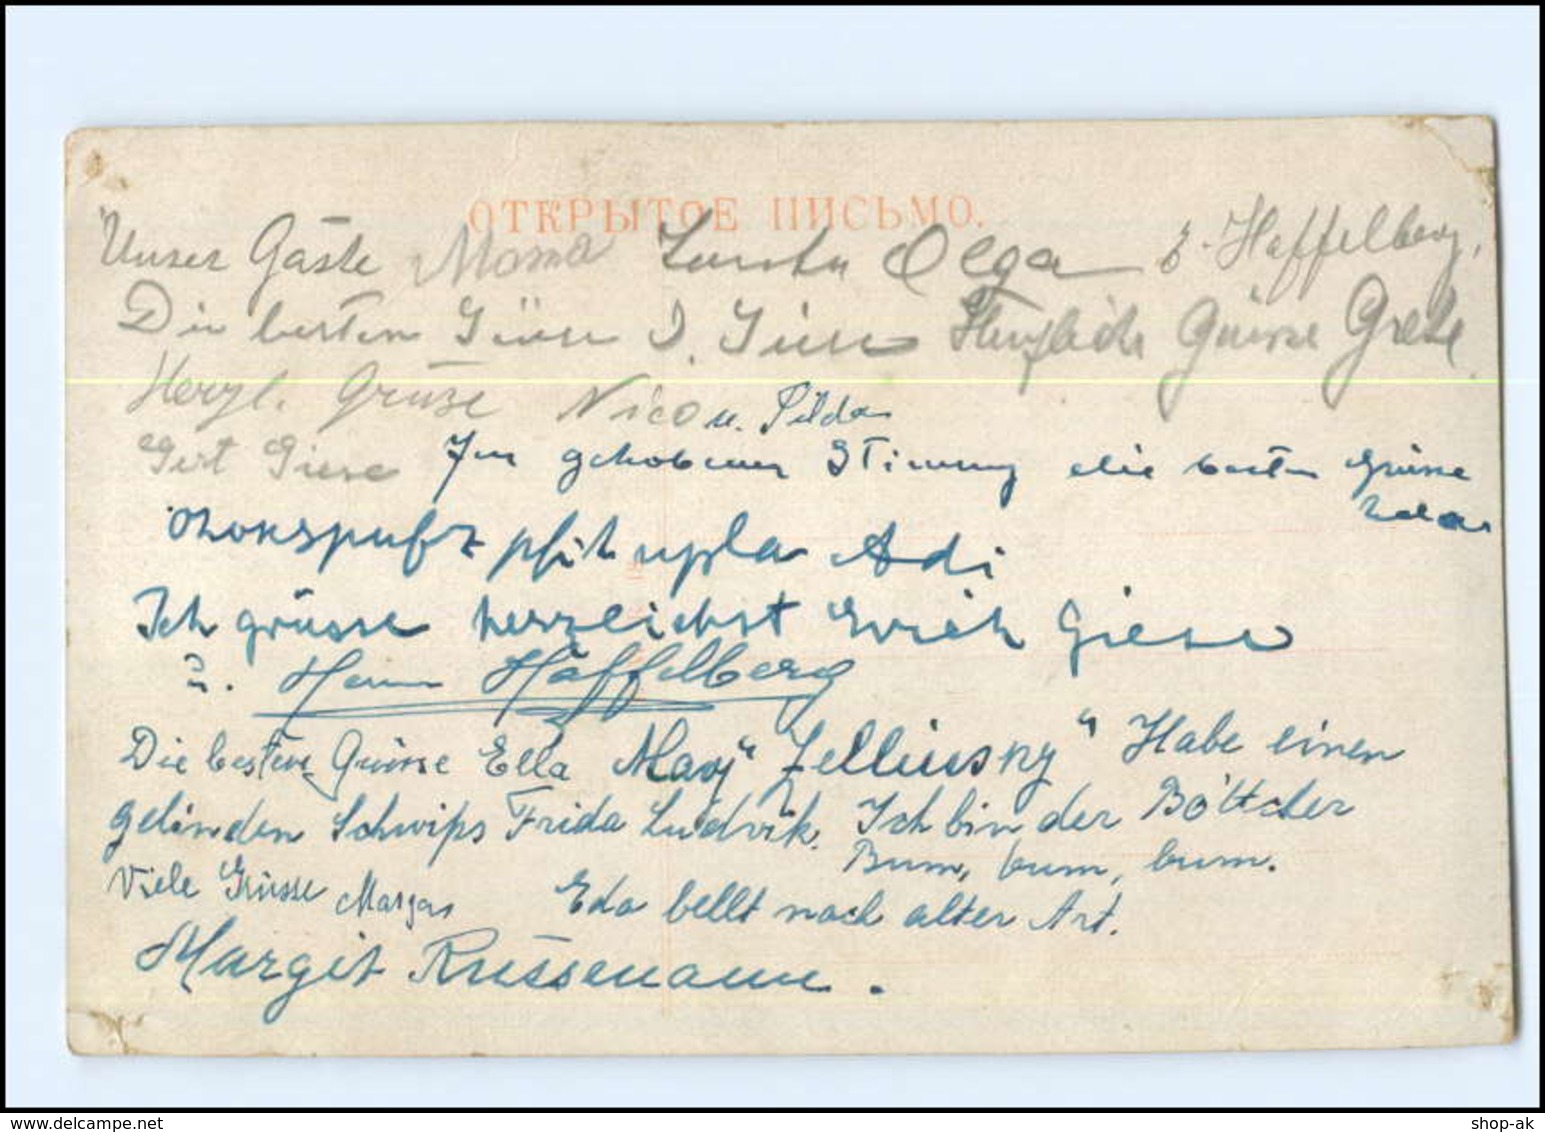 ОТКРЫТОЕ ПИСЬМО.
Unser Gäste Mama Olga E. Haffelberg.
Die besten Grüsse Herzliche Grüsse Grete
Herzl. Grüsse Nico u.
Gert Giese In gehobener Stimmung die besten Grüsse
Adi
Ich grüsse herzlichst Erich Giese
u. Haffelberg
Die besten Grüsse Ella May "Zellinsky" Habe einen
gelinden Schwips Frida Ludvik. Ich bin der Böttcher
Bum, bum, bum.
Viele Grüsse Eda bellt nach alter Art.
Margit Russemann.
shop-ak